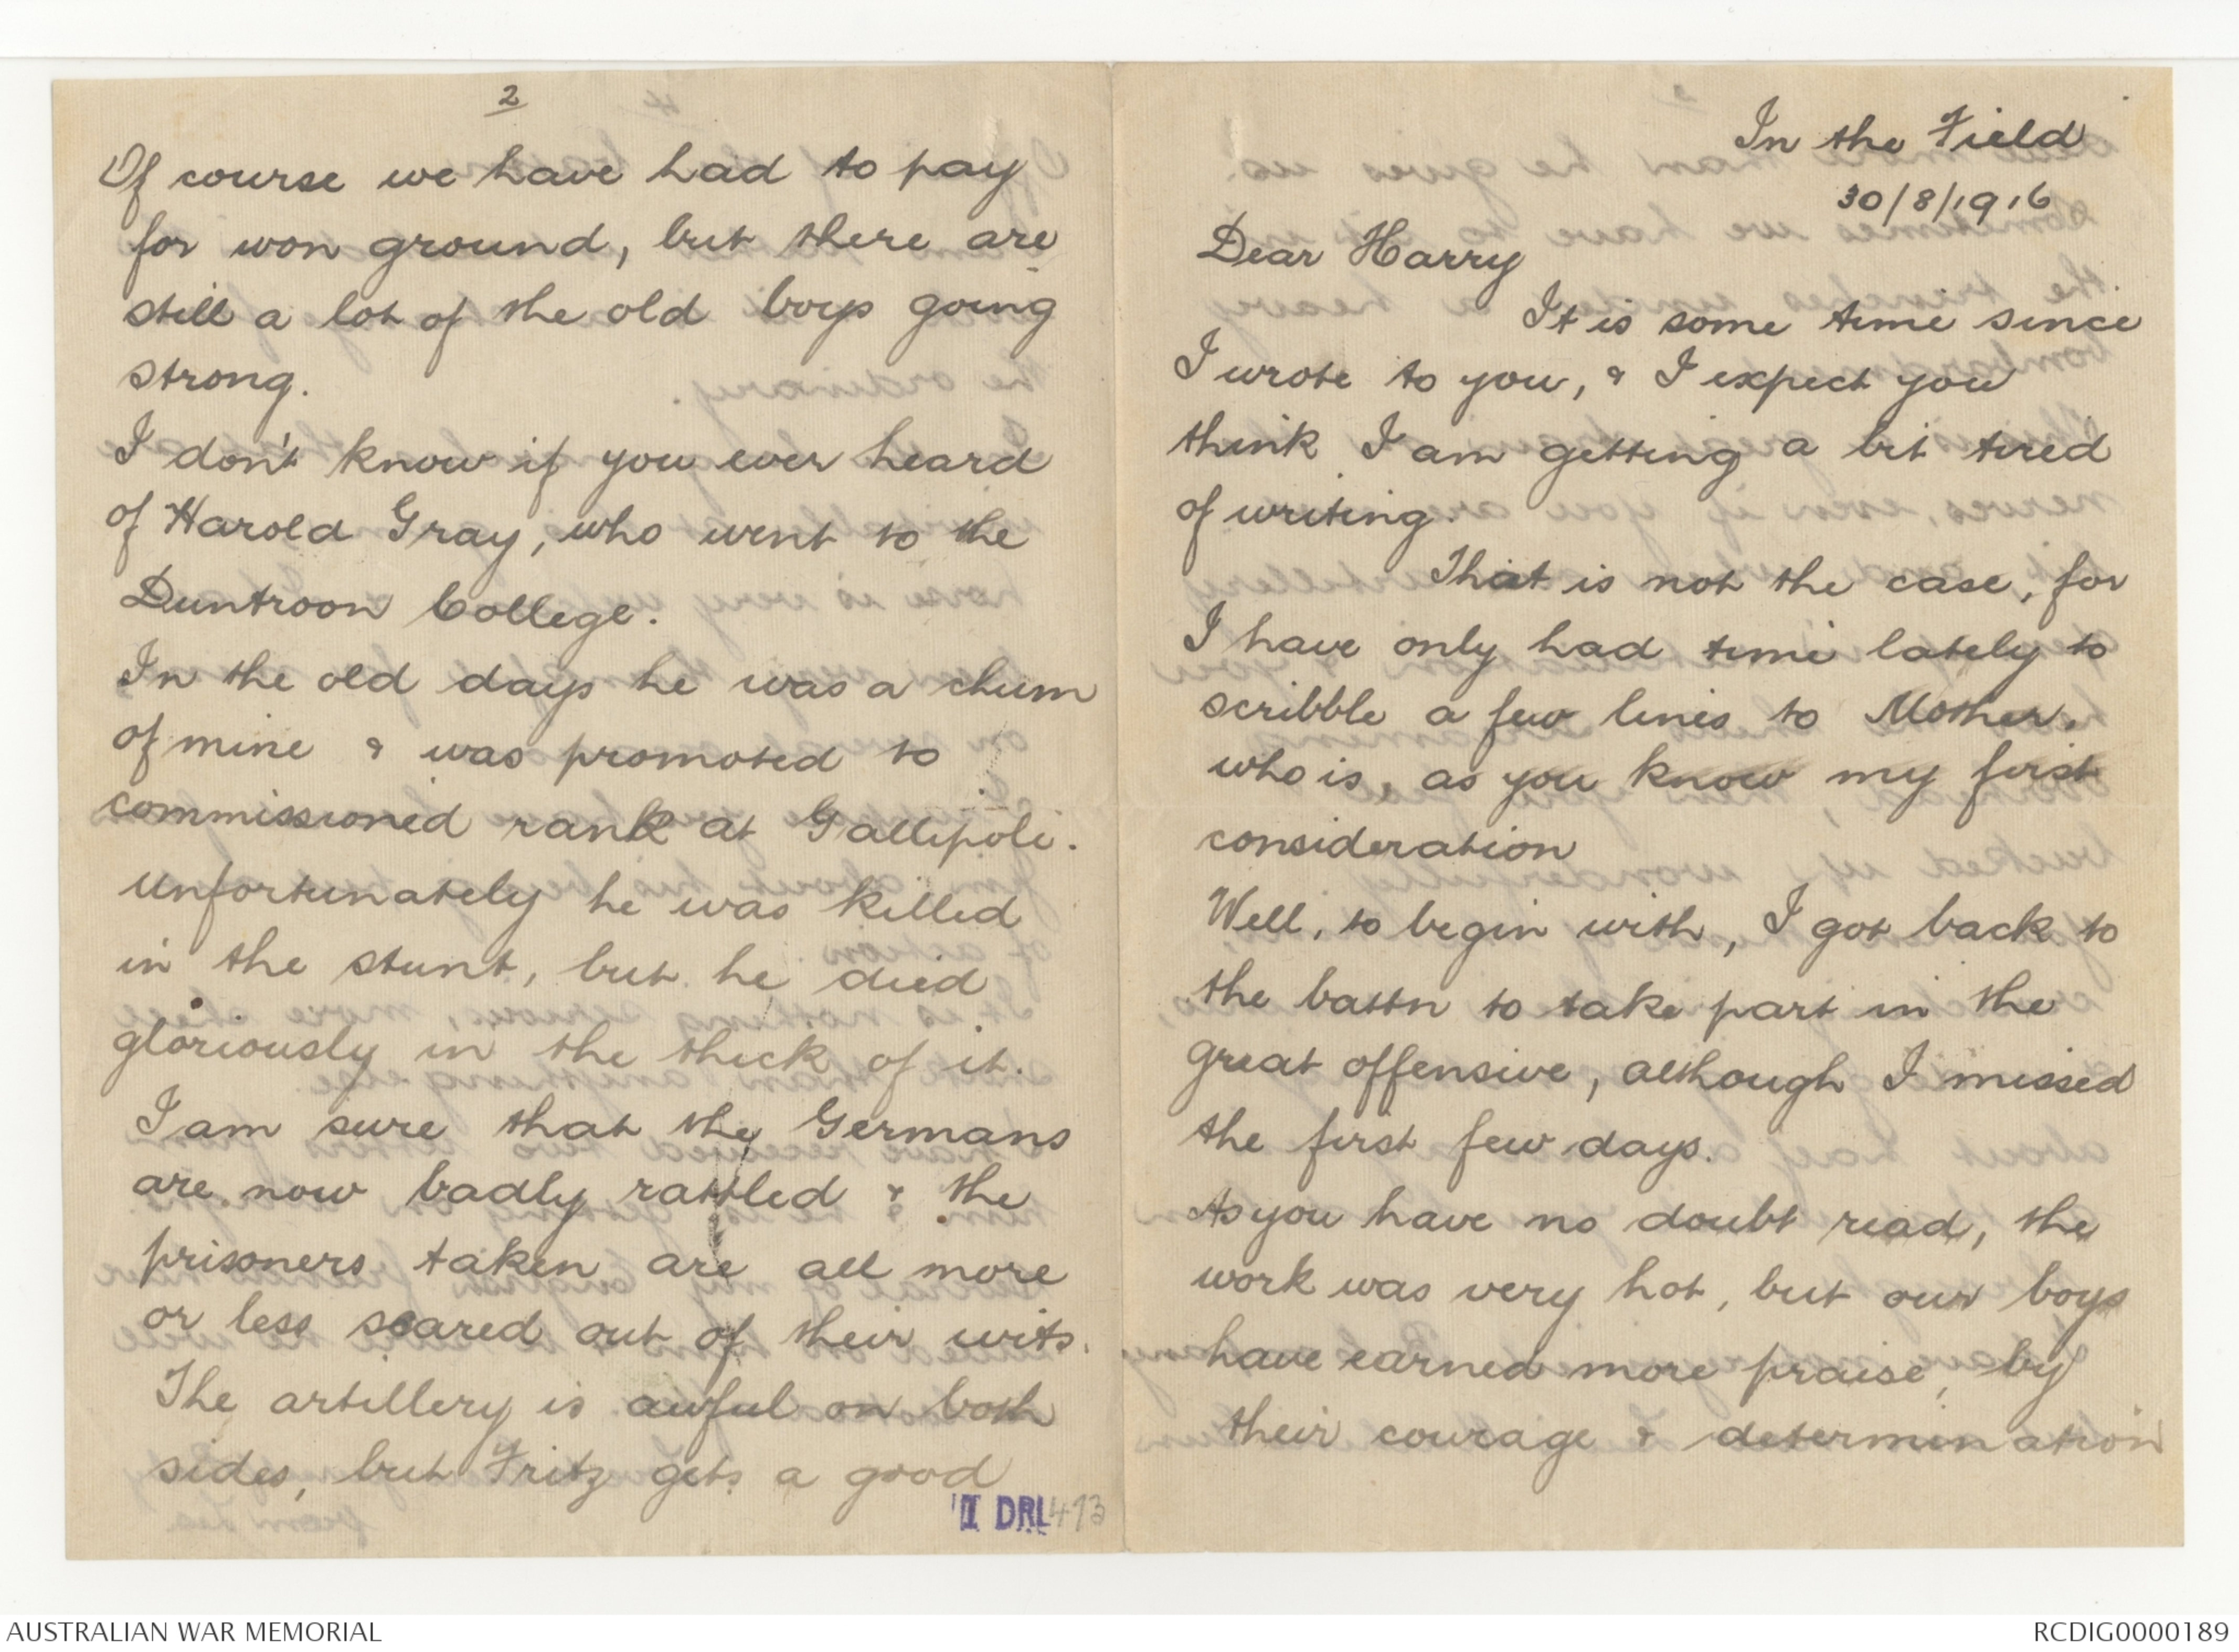 In the Field
30/8/1916
Dear Harry
It is some time since
I wrote to you, & I expect you
think I am getting a bit tired
of writing.
That is not the case, for
I have only had time lately to
scribble a few lines to Mother,
who is, as you know my first
consideration
Well, to begin with, I got back to
the battn to take part in the
great offensive, although I missed
the first few days.
As you have no doubt read, the
work was very hot, but our boys
have earned more praise, by
their courage & determination
2
Of course we have had to pay
for won ground, but there are
still a lot of the old boys going
strong.
I don't know if you ever heard
of Harold Gray, who went to the
Duntroon College.
In the old days he was a chum
of mine & was promoted to
commissioned rank at Gallipoli.
unfortunately he was killed
in the stunt, but he died
gloriously in the thick of it.
I am sure that the Germans
are now badly rattled & the
prisoners taken are all more
or less scared out of their wits.
The artillery is awful on both
sides, but Fritz gets a good
II DRL 473
AUSTRALIAN WAR MEMORIAL
RCDIG0000189